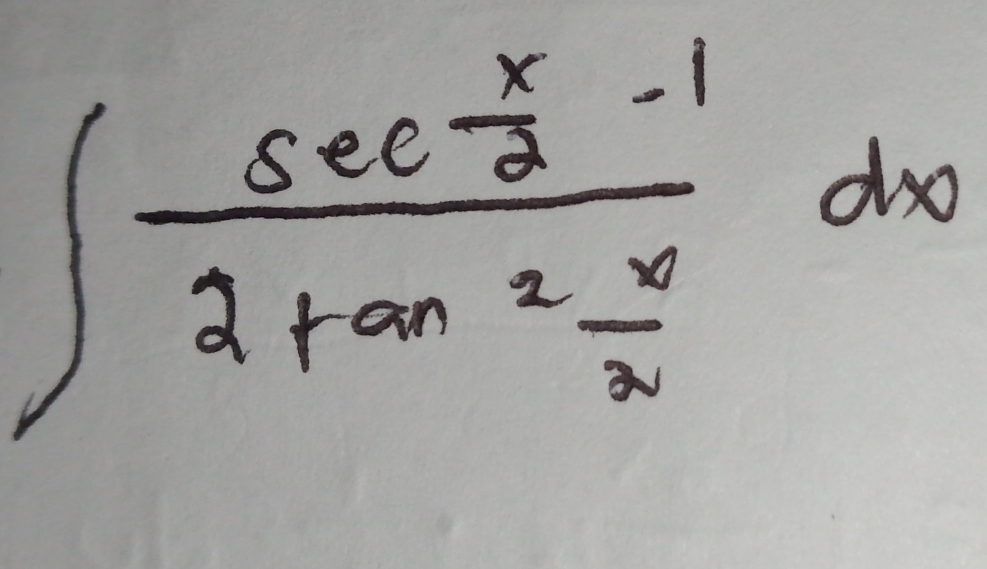 ∫ (sec x/2 - 1) / (2 tan² x/2) dx